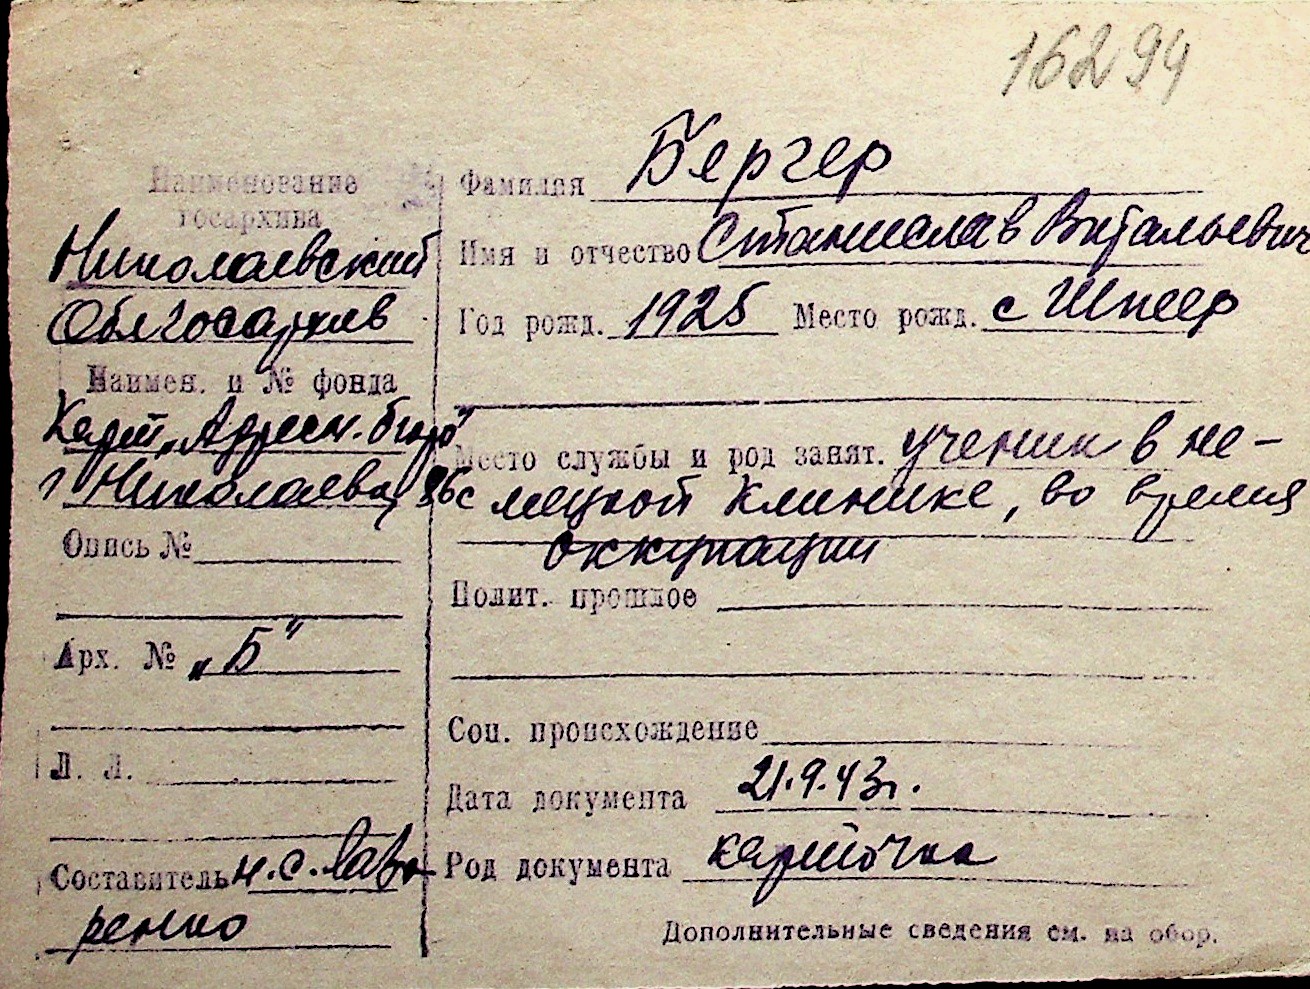 16294
Наименование
госархива
Николаевский
Облгосархив
Наимен. и № фонда
Карт. „Адресн. бюро"
г Николаева,
Опись №
Арх. № „Б"
Л. Л.
Составитель н.с. Лав
ренко
Фамилия Бергер
Имя и отчество Станислав Витальевич
Год рожд. 1925 Место рожд. с Шпеер
Место службы и род занят. ученик в не-
мецкой клинике, во время
оккупации
Полит. прошлое
Соц. происхождение
Дата документа 21.9.43г.
Род документа карточка
Дополнительные сведения см. на обор.